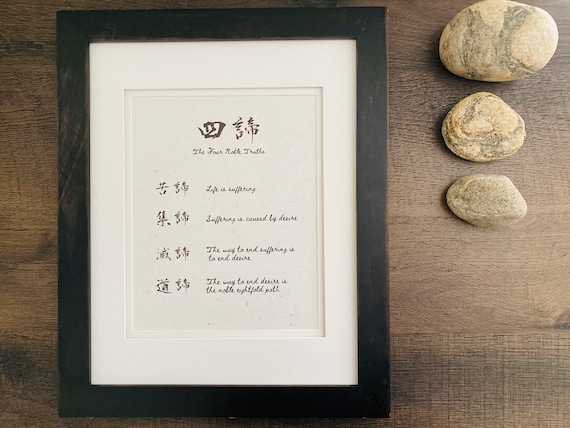 四諦
The Four Noble Truths
苦諦 Life is suffering
集諦 Suffering is caused by desire
滅諦 The way to end suffering is
to end desire
道諦 The way to end desire is
the noble eightfold path